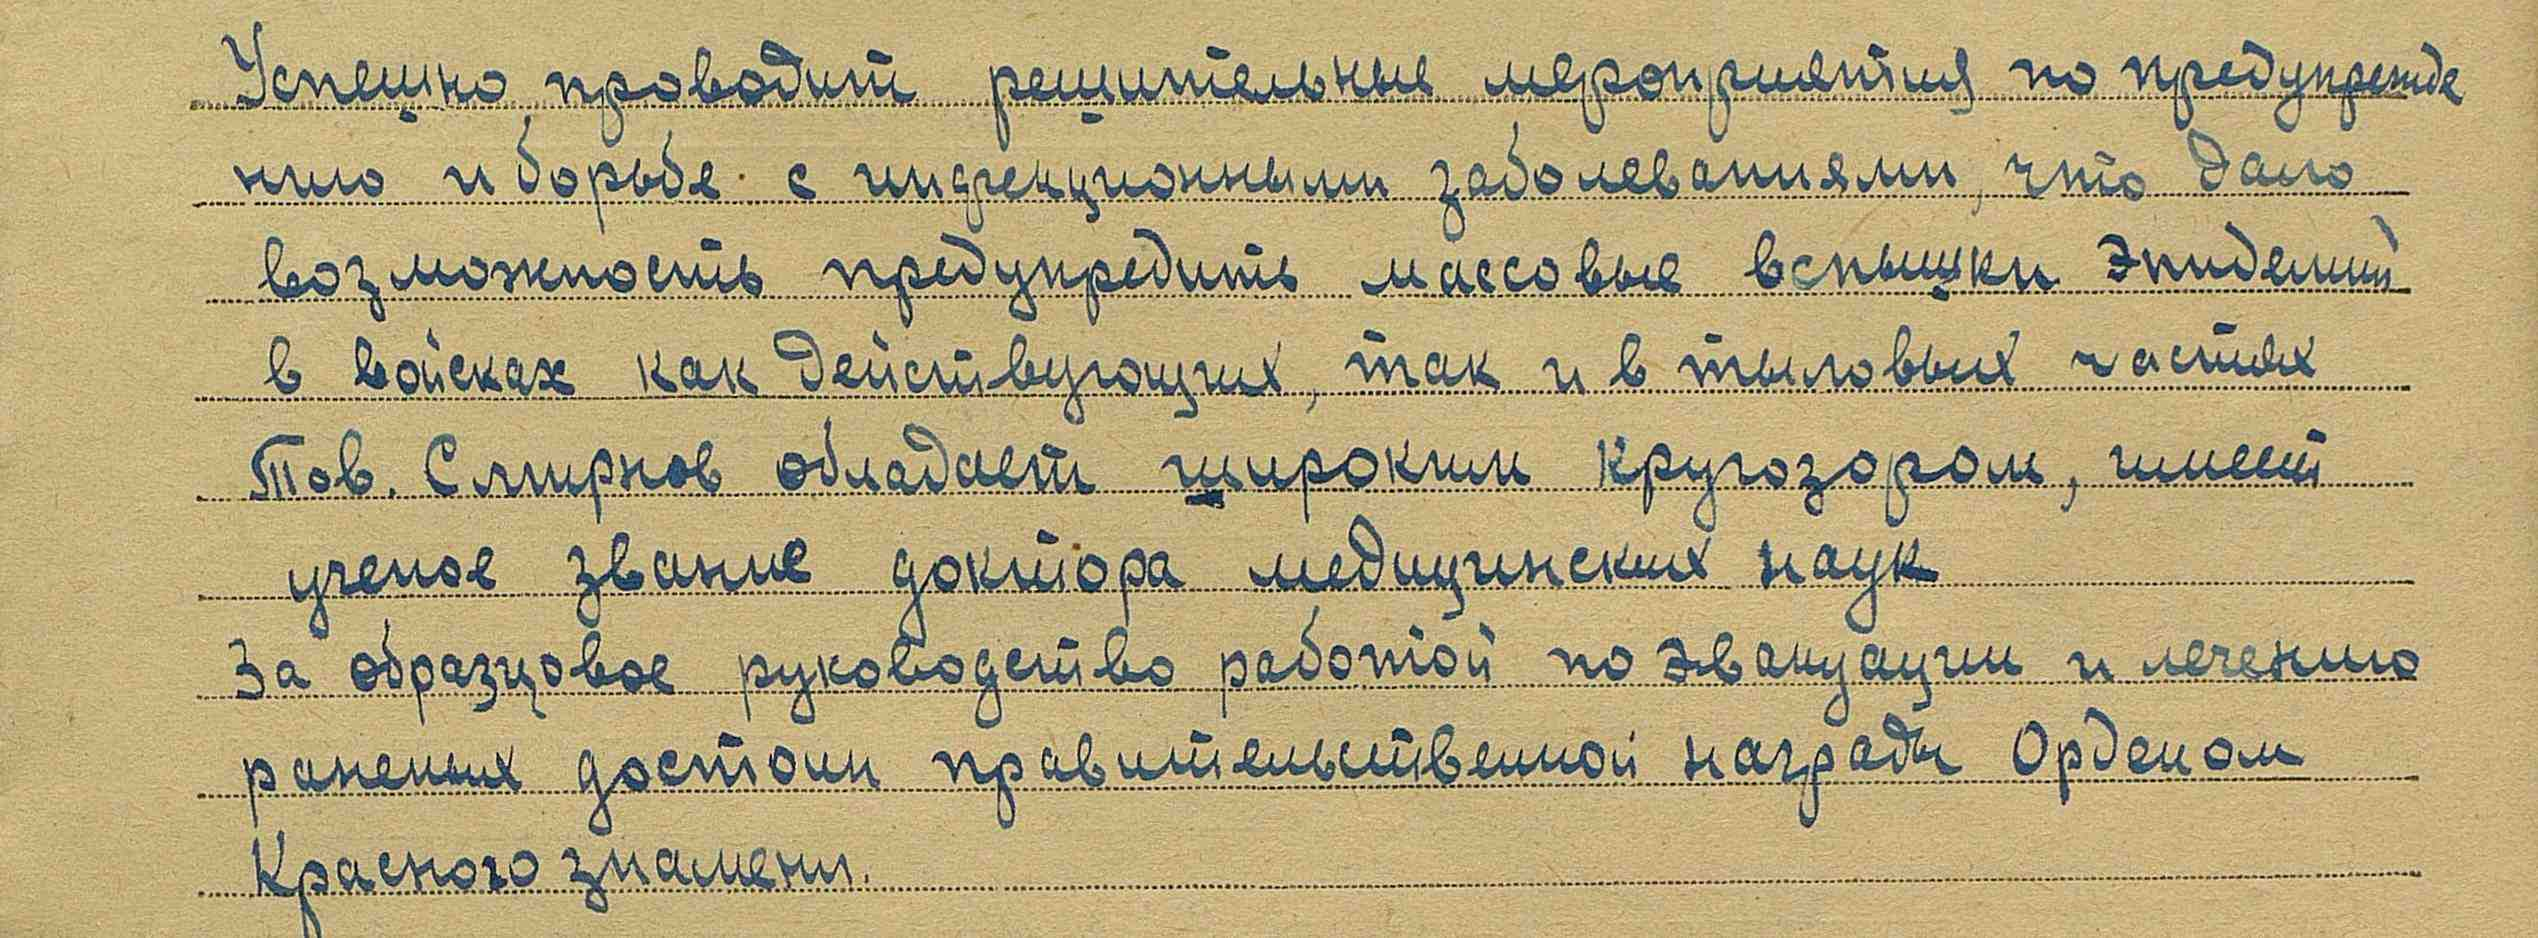 Успешно проводит решительные мероприятия по предупрежде
нию и борьбе с инфекционными заболеваниями, что дало
возможность предупредить массовые вспышки эпидемий
в войсках как действующих, так и в тыловых частях
Тов. Смирнов обладает широким кругозором, имеет
ученое звание доктора медицинских наук
За образцовое руководство работой по эвакуации и лечению
раненых достоин правительственной награды Орденом
Красного знамени.